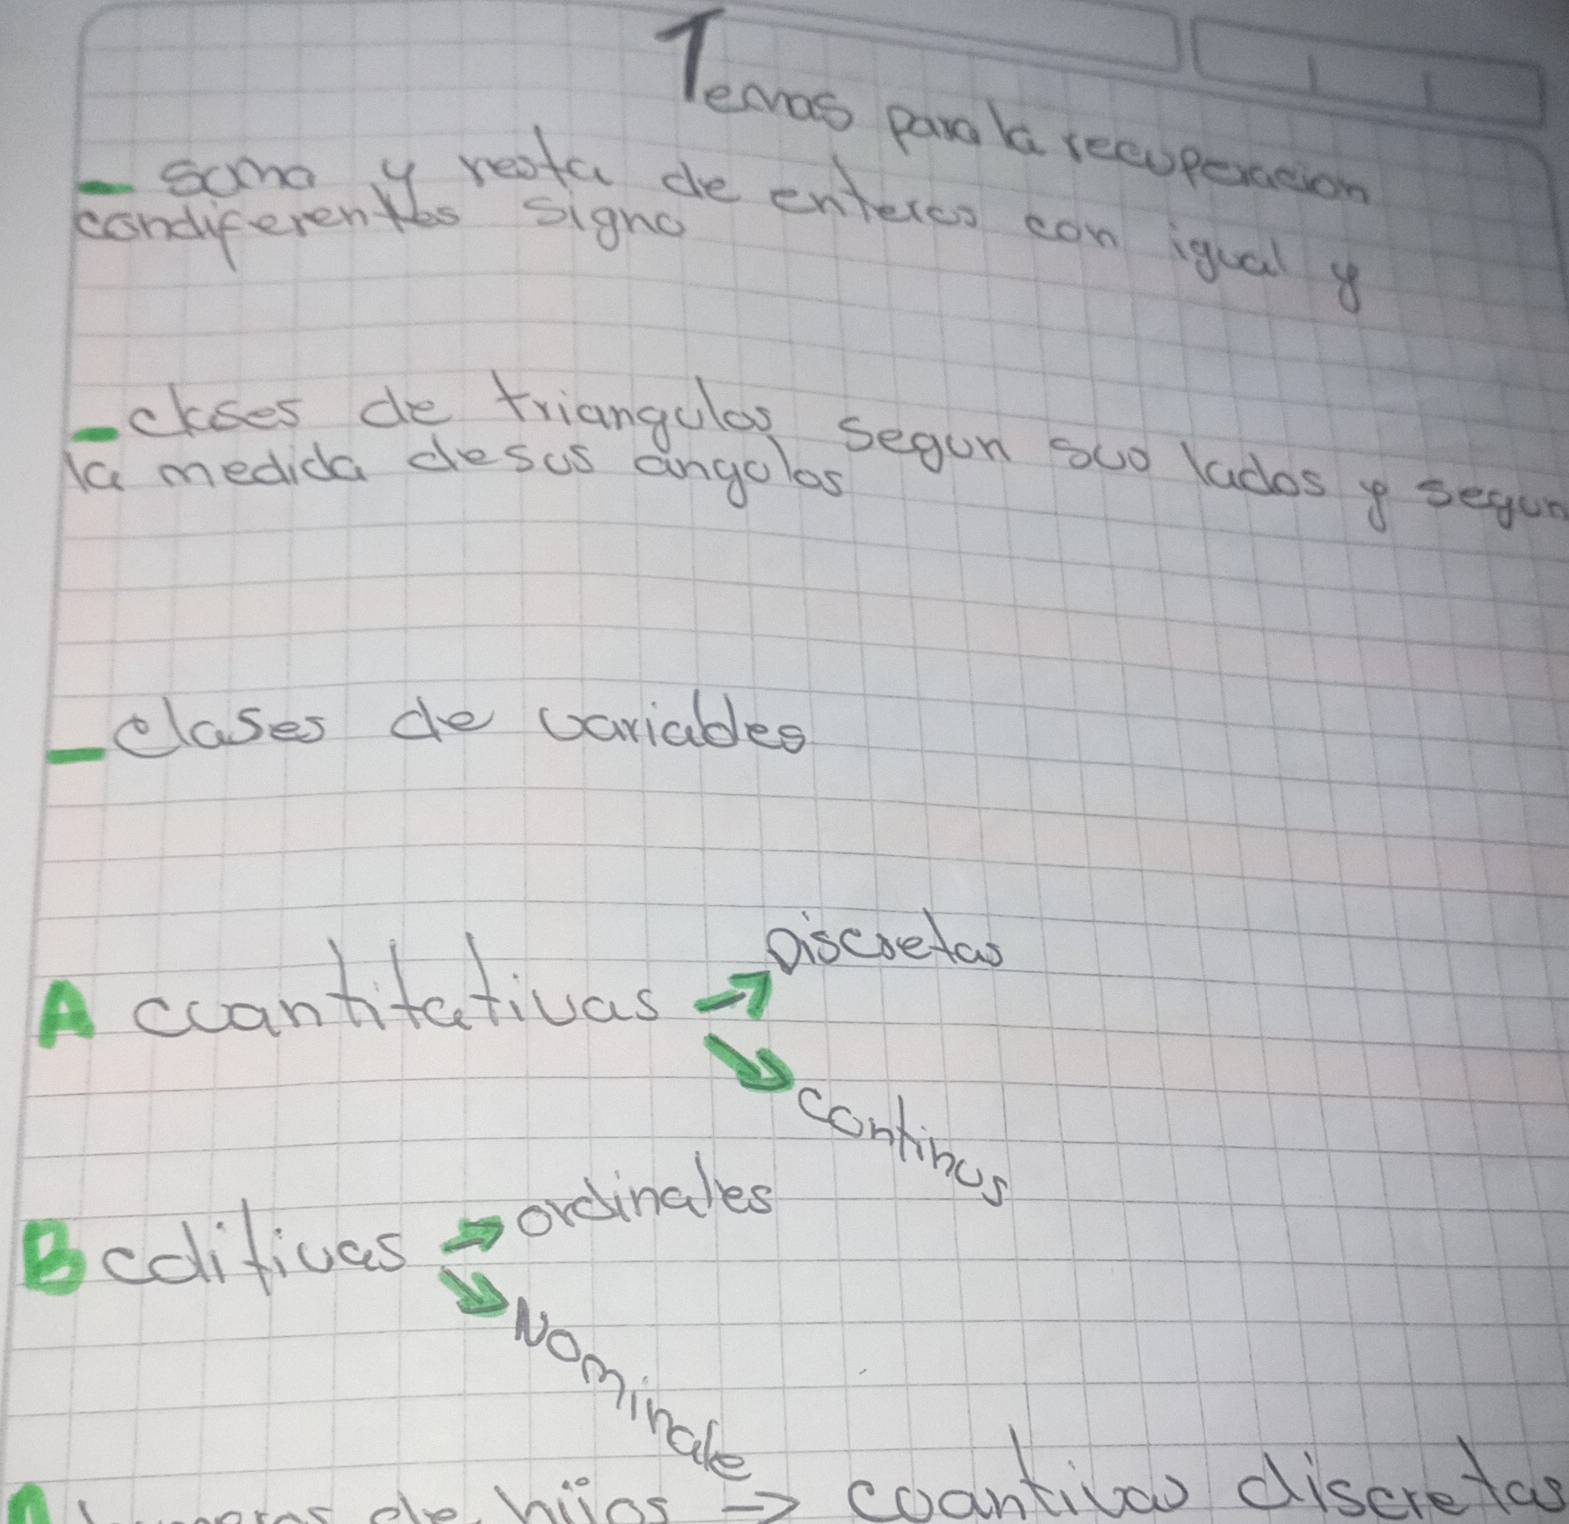 Temas para la recuperacion
- suma y resta de enteros con igual y
condiferentes signo
- clases de triangulos segun sus lados y segun
la medida desus angulos
- clases de variables
A cuantitativas → Discretas
↘ continus
B calitivas → ordinales
↘ Nominale
de hijos → cuantivas discretas